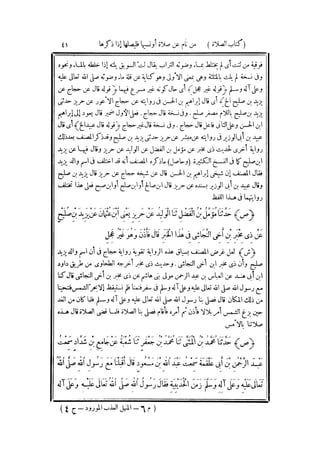 ﴿كتاب الصلاة﴾ من نام عن صلاة أو نسيها فليصلها إذا ذكرها ٤١
فوقية من لتت أى لم يختلط بمائه وضوئه التراب يقال لت السويق يلته إذا خلطه بالماء ونحوه
وفى نسخة لم يلث بالمثلثة وهى بمعنى الأولى وهو كناية عن قلة ماء وضوئه صلى الله تعالى عليه
وعلى آله وسلم ﴿قوله غير عجل﴾ أى حال كونه غير مسرع فيهما ﴿قوله قال عن حجاج عن
يزيد بن صليح الخ﴾ أى قال إبراهيم بن الحسن فى روايته عن حجاج الأعور عن حريز حدثنى
يزيد بن صليح باللام مصغر صلح. وفى نسخة قال حجاج. فعلى الأول ضمير قال يعود إلى إبراهيم
ابن الحسن وعلى الثانى فاعل قال حجاج. وفى نسخة قال غير حجاج ﴿قوله قال عبيد الخ﴾ أى قال
عبيد بن أبى الوزير فى روايته عن مبشر عن حريز حدثنى يزيد بن صليح وقد ذكر المصنف بعد ذلك
رواية أخرى لحديث ذى مخبر عن مؤمل بن الفضل عن الوليد عن حريز وقال فيها عن يزيد
ابن صليح كما فى النسخ الكثيرة ﴿وحاصل﴾ ما ذكره المصنف أنه قد اختلف فى اسم والد يزيد
فقال المصنف إن شيخى إبراهيم بن الحسن قال عن شيخه حجاج عن حريز قال يزيد بن صليح
وقال عبيد بن أبى الوزير بسنده عن حريز قال ابن صالح أو ابن صليح أو ابن صبح فعلى هذا تختلف
روايتهما فى هذا اللفظ
﴿ص﴾ حَدَّثَنَا مُؤَمَّلُ بْنُ الْفَضْلِ ثَنَا الْوَلِيدُ عَنْ حَرِيزٍ يَعْنِى ابْنَ عُثْمَانَ عَنْ يَزِيدَ بْنِ صُلَيْحٍ
عَنْ ذِى مِخْبَرِ بْنِ أَخِى النَّجَاشِىِّ فِى هٰذَا الْخَبَرِ قَالَ فَأَذَّنَ وَهُوَ غَيْرُ عَجِلٍ
﴿ش﴾ لعل غرض المصنف بسياق هذه الرواية تقوية رواية حجاج فى أن اسم والد يزيد
صليح وأن ذى مخبر ابن أخى النجاشى. وحديث ذى مخبر أخرجه الطحاوى من طريق داود
ابن أبى هند عن العباس بن عبد الرحمن مولى بنى هاشم عن ذى مخبر بن أخى النجاشى قال كنا
مع رسول الله صلى الله تعالى عليه وعلى آله وسلم فى سفر فنمنا فلم نستيقظ إلا بحر الشمس فتنحينا
من ذلك المكان قال فصلى بنا رسول الله صلى الله تعالى عليه وعلى آله وسلم فلما كان من الغد
حين بزغ الشمس أمر بلالا فأذن ثم أمره فأقام فصلى بنا الصلاة فلما قضى الصلاة قال هذه
صلاتنا بالأمس
﴿ص﴾ حَدَّثَنَا مُحَمَّدُ بْنُ الْمُثَنَّى ثَنَا مُحَمَّدُ بْنُ جَعْفَرٍ ثَنَا شُعْبَةُ عَنْ جَامِعِ بْنِ شَدَّادٍ سَمِعْتُ
عَبْدَ الرَّحْمٰنِ بْنَ أَبِى عَلْقَمَةَ سَمِعْتُ عَبْدَ اللهِ بْنَ مَسْعُودٍ قَالَ أَقْبَلْنَا مَعَ رَسُولِ اللهِ صَلَّى اللهُ
تَعَالَى عَلَيْهِ وَعَلَى آلِهِ وَسَلَّمَ زَمَنَ الْحُدَيْبِيَةِ فَقَالَ رَسُولُ اللهِ صَلَّى اللهُ تَعَالَى عَلَيْهِ وَعَلَى آلِهِ
﴿م ٦ – المنهل العذب المورود – ج ٤﴾